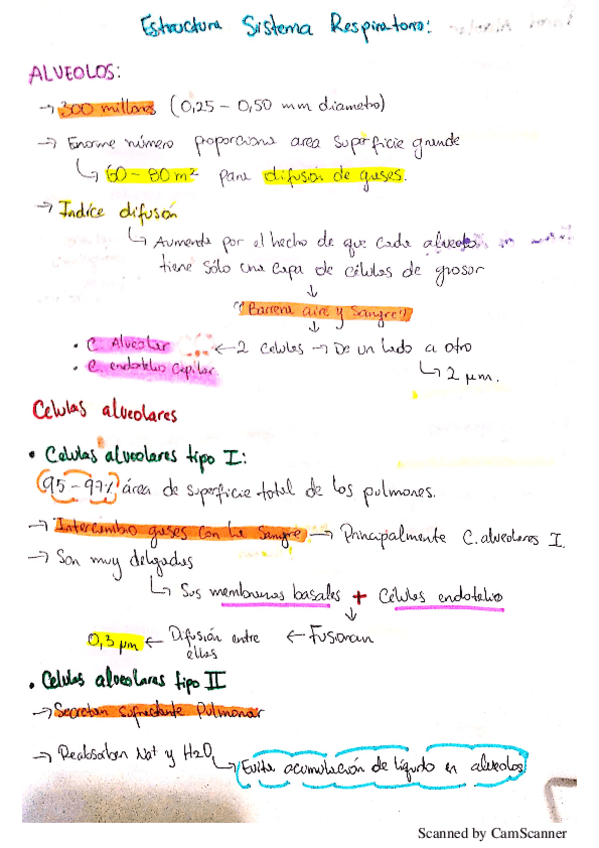 Estructura Sistema Respiratorio:
ALVEOLOS:
→ 300 millones (0,25 - 0,50 mm diametro)
→ Enorme número proporciona area superficie grande
↳ 60 - 80 m² para difusión de gases.
→ Indíce difusón
↳ Aumenta por el hecho de que cada alveolo
tiene sólo una capa de células de grosor
↓
"Barrera aire y sangre"
↓
• C. Alveolar ← 2 celulas → De un lado a otro
• C. endotelio Capilar ↳ 2 µm.
Celulas alveolares
• Celulas alveolares tipo I:
95 - 97% área de superficie total de los pulmones.
→ Intercambio gases con la sangre → Principalmente C. alveolares I.
→ Son muy delgadas
↳ Sus membranas basales + Células endotelio
↓
0,3 µm ← Difusión entre ellas ← Fusionan
• Celulas alveolares tipo II
→ Secretan Sufractante Pulmonar
→ Reabsorben Na+ y H2O ↳ Evita acumulación de líquido en alveolos
Scanned by CamScanner